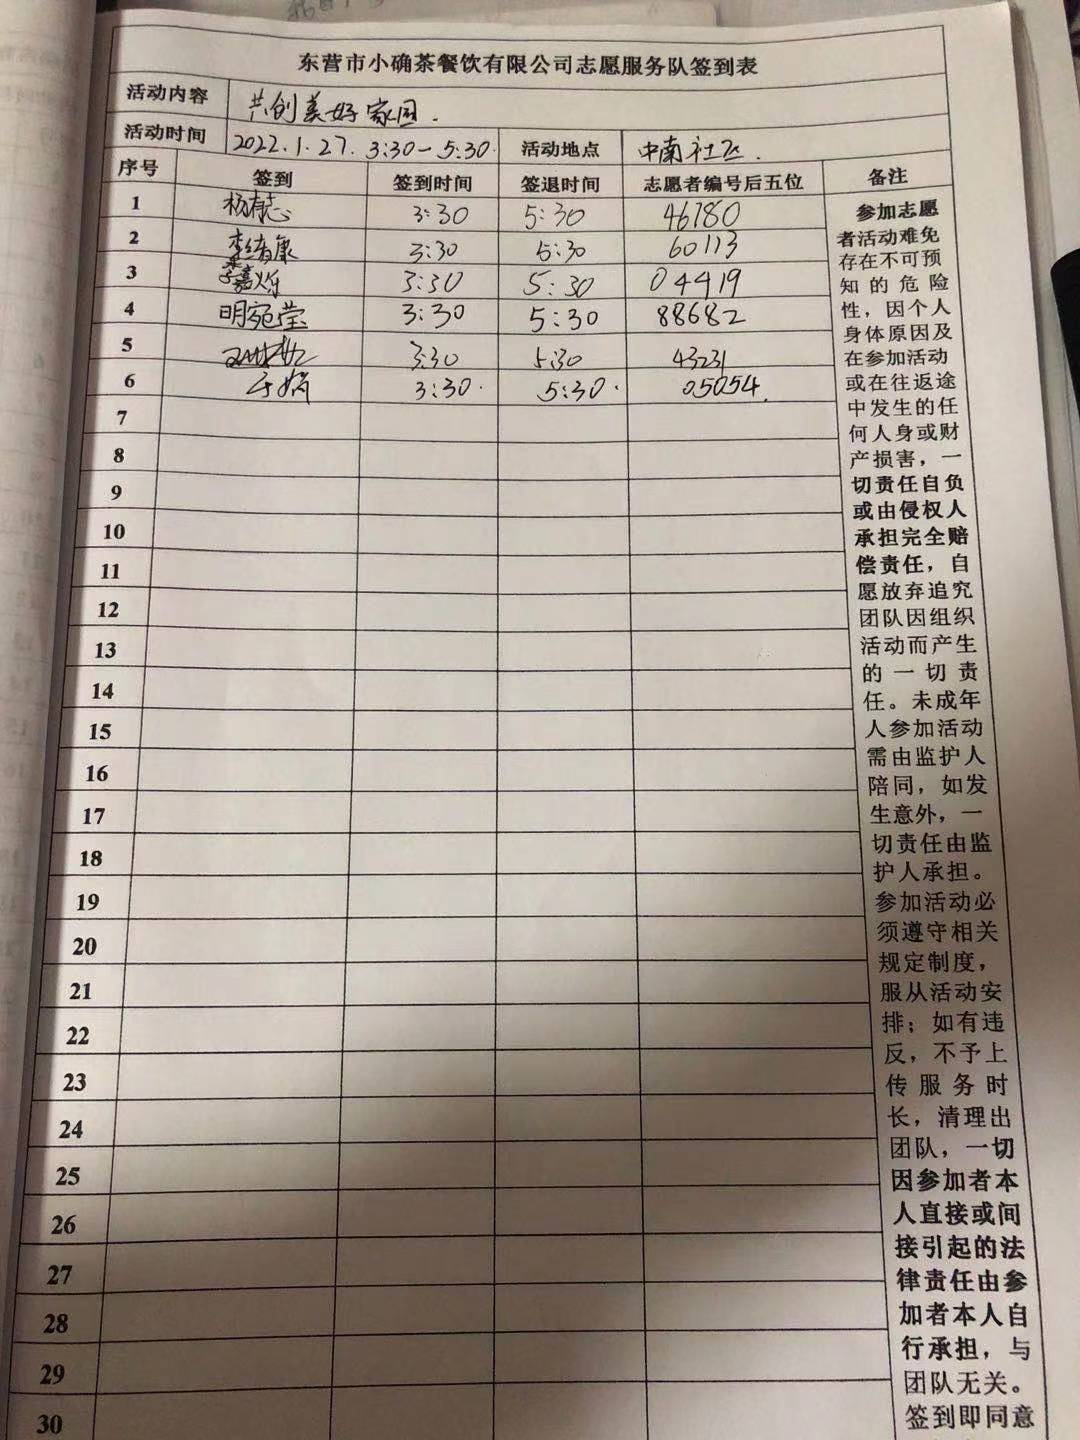 东营市小确茶餐饮有限公司志愿服务队签到表
活动内容 共创美好家园.
活动时间 2022.1.27. 3:30-5:30. 活动地点 中南社区.
序号 签到 签到时间 签退时间 志愿者编号后五位 备注
1 3:30 5:30 46780
2 3:30 5:30 60113
3 3:30 5:30 04419
4 明宛莹 3:30 5:30 88682
5 3:30 5:30 43231
6 于娟 3:30. 5:30. 05054.
7
8
9
10
11
12
13
14
15
16
17
18
19
20
21
22
23
24
25
26
27
28
29
30
参加志愿
者活动难免
存在不可预
知的危险
性，因个人
身体原因及
在参加活动
或在往返途
中发生的任
何人身或财
产损害，一
切责任自负
或由侵权人
承担完全赔
偿责任，自
愿放弃追究
团队因组织
活动而产生
的一切责
任。未成年
人参加活动
需由监护人
陪同，如发
生意外，一
切责任由监
护人承担。
参加活动必
须遵守相关
规定制度，
服从活动安
排；如有违
反，不予上
传服务时
长，清理出
团队，一切
因参加者本
人直接或间
接引起的法
律责任由参
加者本人自
行承担，与
团队无关。
签到即同意